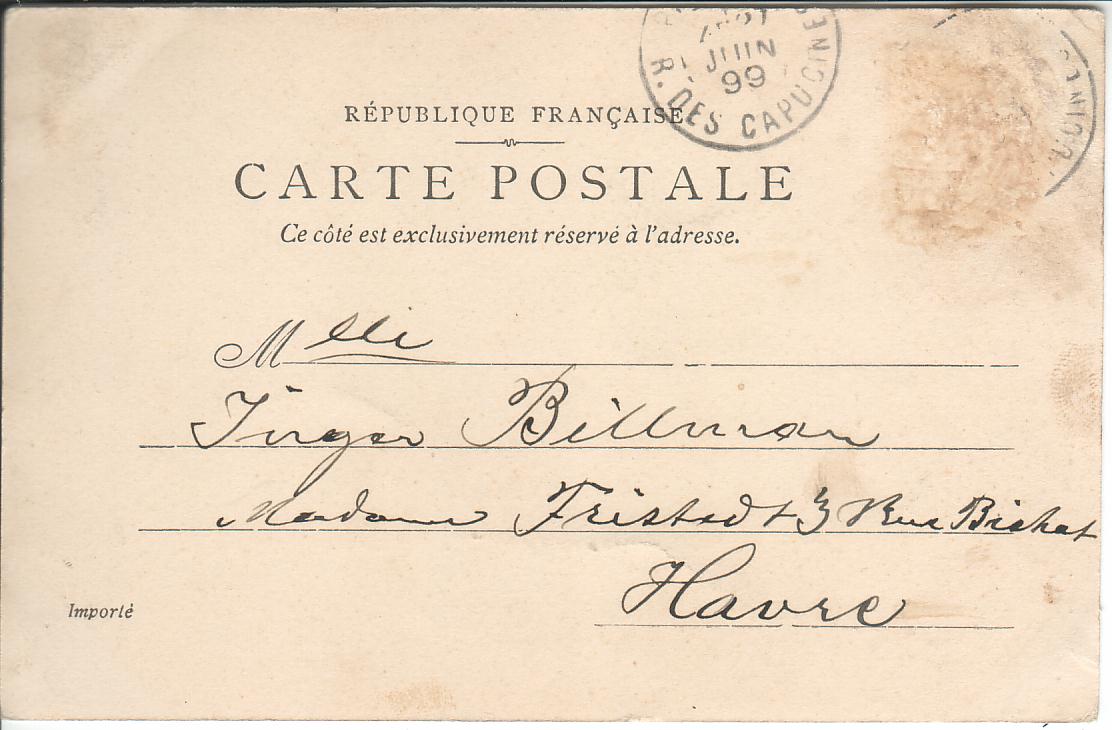 JUIN
99
R. DES CAPUCINE
RÉPUBLIQUE FRANÇAISE
CARTE POSTALE
Ce côté est exclusivement réservé à l'adresse.
Mlle
Inger Billman
Madame Fristedt 3 Rue Bichat
Havre
Importé